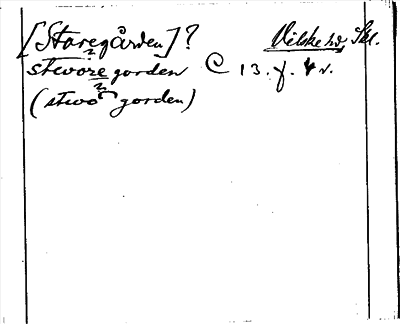 [Staregården]? Vilske hd, Skl.
stworegorden C 13. f. 4 v.
(stwo gorden)